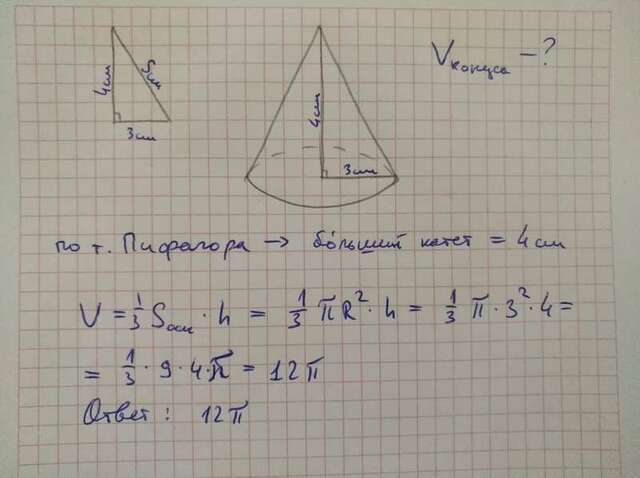 4см
5см
3см
V конуса – ?
4см
3см
по т. Пифагора → бо́льший катет = 4 см
V = 1/3 Sосн · h = 1/3 πR² · h = 1/3 π · 3² · 4 =
= 1/3 · 9 · 4 · π = 12π
Ответ : 12π